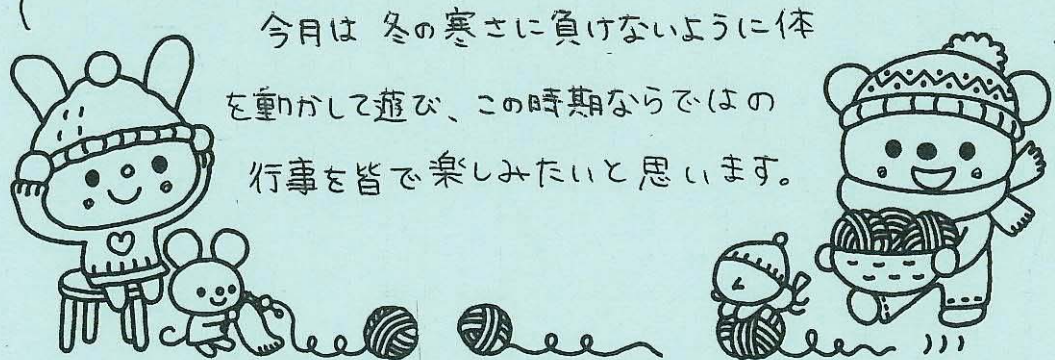 今月は 冬の寒さに負けないように体
を動かして遊び、この時期ならではの
行事を皆で楽しみたいと思います。